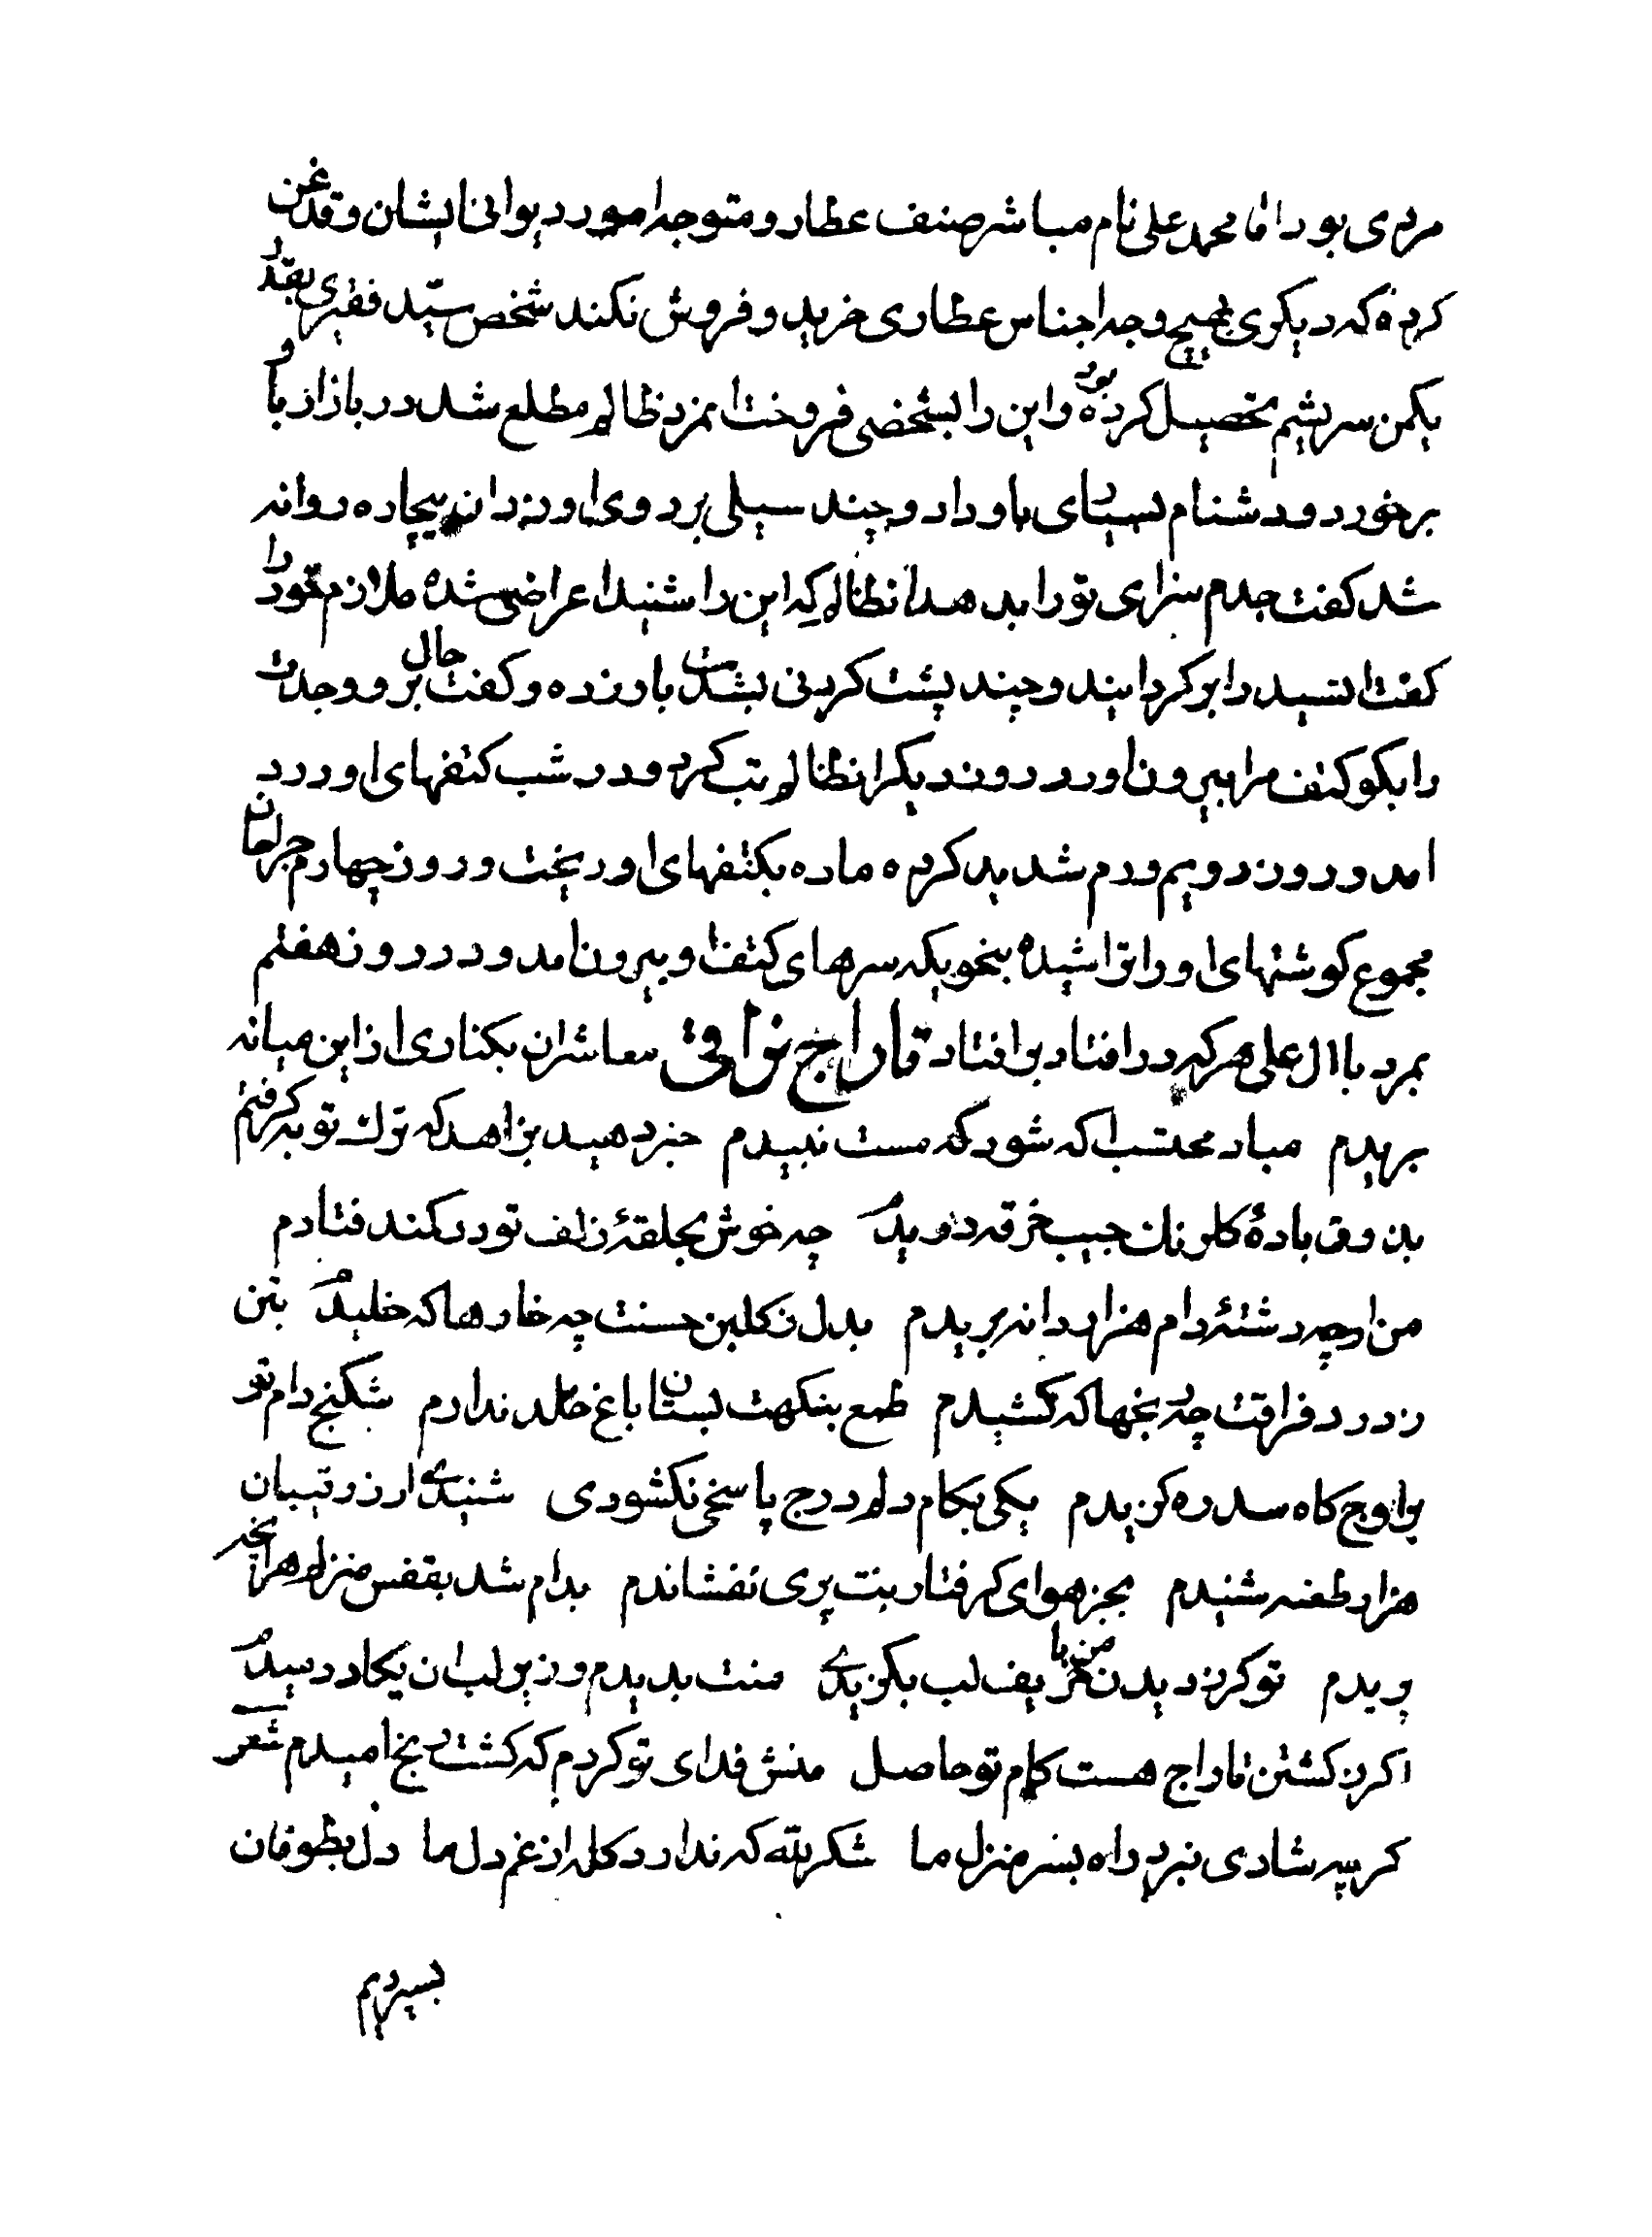 مردی بود اقا محمد علی نام مباشر صنف عطار و متوجه امور دیوانی ایشان و قدغن
کرده که دیکری بهیچ وجه اجناس عطاری خرید و فروش نکند شخص سیّد فقیری بقدر
یکمن سریشم تحصیل کرده بود واین را بشخصی فروخت انمرد ظالم مطلع شد در بازار باو
برخورد و دشنام بسیاری باو داد و چند سیلی بر روی او زد ان بیچاره روانه
شد کفت جدم سزای تو را بدهد انظالم که این را شنید اعراضی شده ملازم خود را
کفت ان سید را برکردانیند و چند پشت کردنی بشدت باو زده و کفت حال برو و جدت
را بکو کتف مرا بیرون اورد روز دیکر انظالم تب کرد و در شب کتفهای او درد
امد و روز دویم ورم شدید کرده ماده بکتفهای او ریخت و روز چهارم جراحان
مجموع کوشتهای او را تراشیده بنحویکه سرهای کتف او بیرون امد و در روز هفتم
بمرد باال علی هرکه درافتاد برافتاد تاراج نراقی معاشران بکناری از این میانه
برهیدم مباد محتسب اکه شود که مست نبیدم خبر دهید بزاهد که ترک توبه کرفتم
بذوق بادهٔ کلرنک جیب خرقه دریدم چه خوش بحلقهٔ زلف تو در کمند فتادم
من ارچه رشتهٔ دام هزار دانه بریدم بدل ز کلبن حسنت چه خارها که خلیدم بتن
ز درد فراقت چه رنجها که کشیدم طمع بنکهت بستان باغ خلد ندارم شکنج دام تو
بر اوج کاه سدره کزیدم یکی بکام دلم درج پاسخی نکشودی شنیدی ار ز رقیبان
هزار طعنه شنیدم بجز هوای کرفتار بنت پری نفشاندم بدام شد بقفس منزلم هرانچه
پریدم تو کر ز دیدن من با حریف لب بکزیدی منت بدیدم و زیر لب ان یکاد دمیدم
اکر ز کشتن تاراج هست کام تو حاصل منش فدای تو کردم که کشت نخ امیدم شعر
کرسپه شادی نبرد راه بسر منزل ما شکر لله که ندارد کله از غم دل ما دل بطوفان
بسپردیم